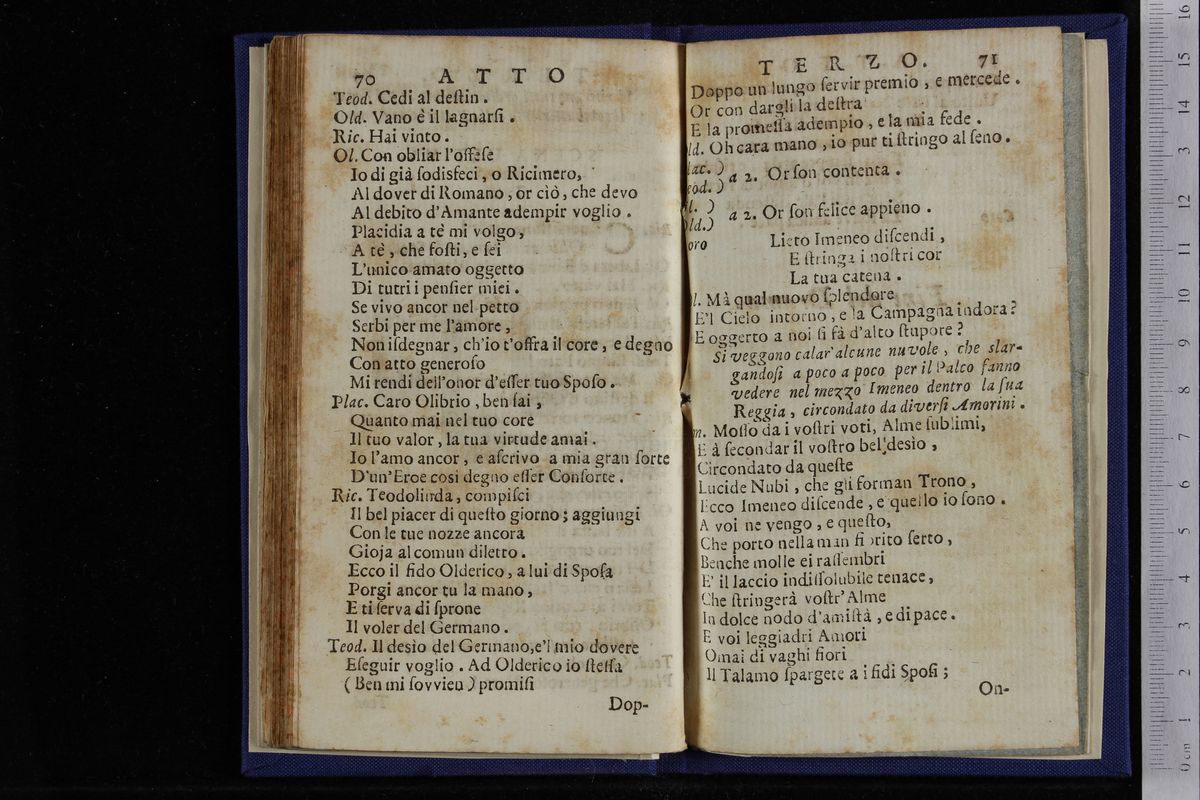 70 ATTO
Teod. Cedi al deſtin .
Old. Vano è il lagnarſi .
Ric. Hai vinto .
Ol. Con obliar l'offeſe
Io di già ſodisfeci , o Ricimero,
Al dover di Romano , or ciò , che devo
Al debito d'Amante adempir voglio .
Placidia a tè mi volgo ,
A tè , che foſti, e ſei
L'unico amato oggetto
Di tutti i penſier miei .
Se vivo ancor nel petto
Serbi per me l'amore ,
Non iſdegnar , ch'io t'offra il core , e degno
Con atto generoſo
Mi rendi dell'onor d'eſſer tuo Spoſo .
Plac. Caro Olibrio , ben ſai ,
Quanto mai nel tuo core
Il tuo valor , la tua virtude amai .
Io l'amo ancor , e aſcrivo a mia gran ſorte
D'un'Eroe così degno eſſer Conſorte .
Ric. Teodolinda , compiſci
Il bel piacer di queſto giorno ; aggiungi
Con le tue nozze ancora
Gioja al comun diletto .
Ecco il fido Olderico , a lui di Spoſa
Porgi ancor tu la mano ,
E ti ſerva di ſprone
Il voler del Germano .
Teod. Il desìo del Germano,e'l mio dovere
Eſeguir voglio . Ad Olderico io ſteſſa
( Ben mi ſovvien ) promiſi
Dop-
TERZO. 71
Doppo un lungo ſervir premio , e mercede .
Or con dargli la deſtra
E la promeſſa adempio , e la mia fede .
ld. Oh cara mano , io pur ti ſtringo al ſeno .
lac. )
eod. ) a 2. Or ſon contenta .
l. )
ld.) a 2. Or ſon felice appieno .
oro Lieto Imeneo diſcendi ,
E ſtringa i noſtri cor
La tua catena .
l. Mà qual nuovo ſplendore
E'l Cielo intorno , e la Campagna indora ?
E oggetto a noi ſi fà d'alto ſtupore ?
Si veggono calar alcune nuvole , che slar-
gandoſi a poco a poco per il Palco fanno
vedere nel mezzo Imeneo dentro la ſua
Reggia , circondato da diverſi Amorini .
m. Moſſo da i voſtri voti, Alme ſublimi,
E à ſecondar il voſtro bel desìo ,
Circondato da queſte
Lucide Nubi , che gli forman Trono ,
Ecco Imeneo diſcende , e quello io ſono .
A voi ne vengo , e queſto,
Che porto nella man fiorito ſerto ,
Benche molle ei raſſembri
E' il laccio indiſſolubile tenace ,
Che ſtringerà voſtr'Alme
In dolce nodo d'amiſtà , e di pace .
E voi leggiadri Amori
Omai di vaghi fiori
Il Talamo ſpargete a i fidi Spoſi ;
On-
0 cm 1 2 3 4 5 6 7 8 9 10 11 12 13 14 15 16